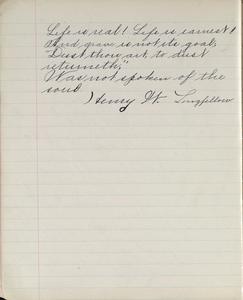 Life is real! Life is earnest!
And, grave is not its goal,
Dust thou art, to dust
returneth,"
Was not spoken of the
soul
Henry W. Longfellow